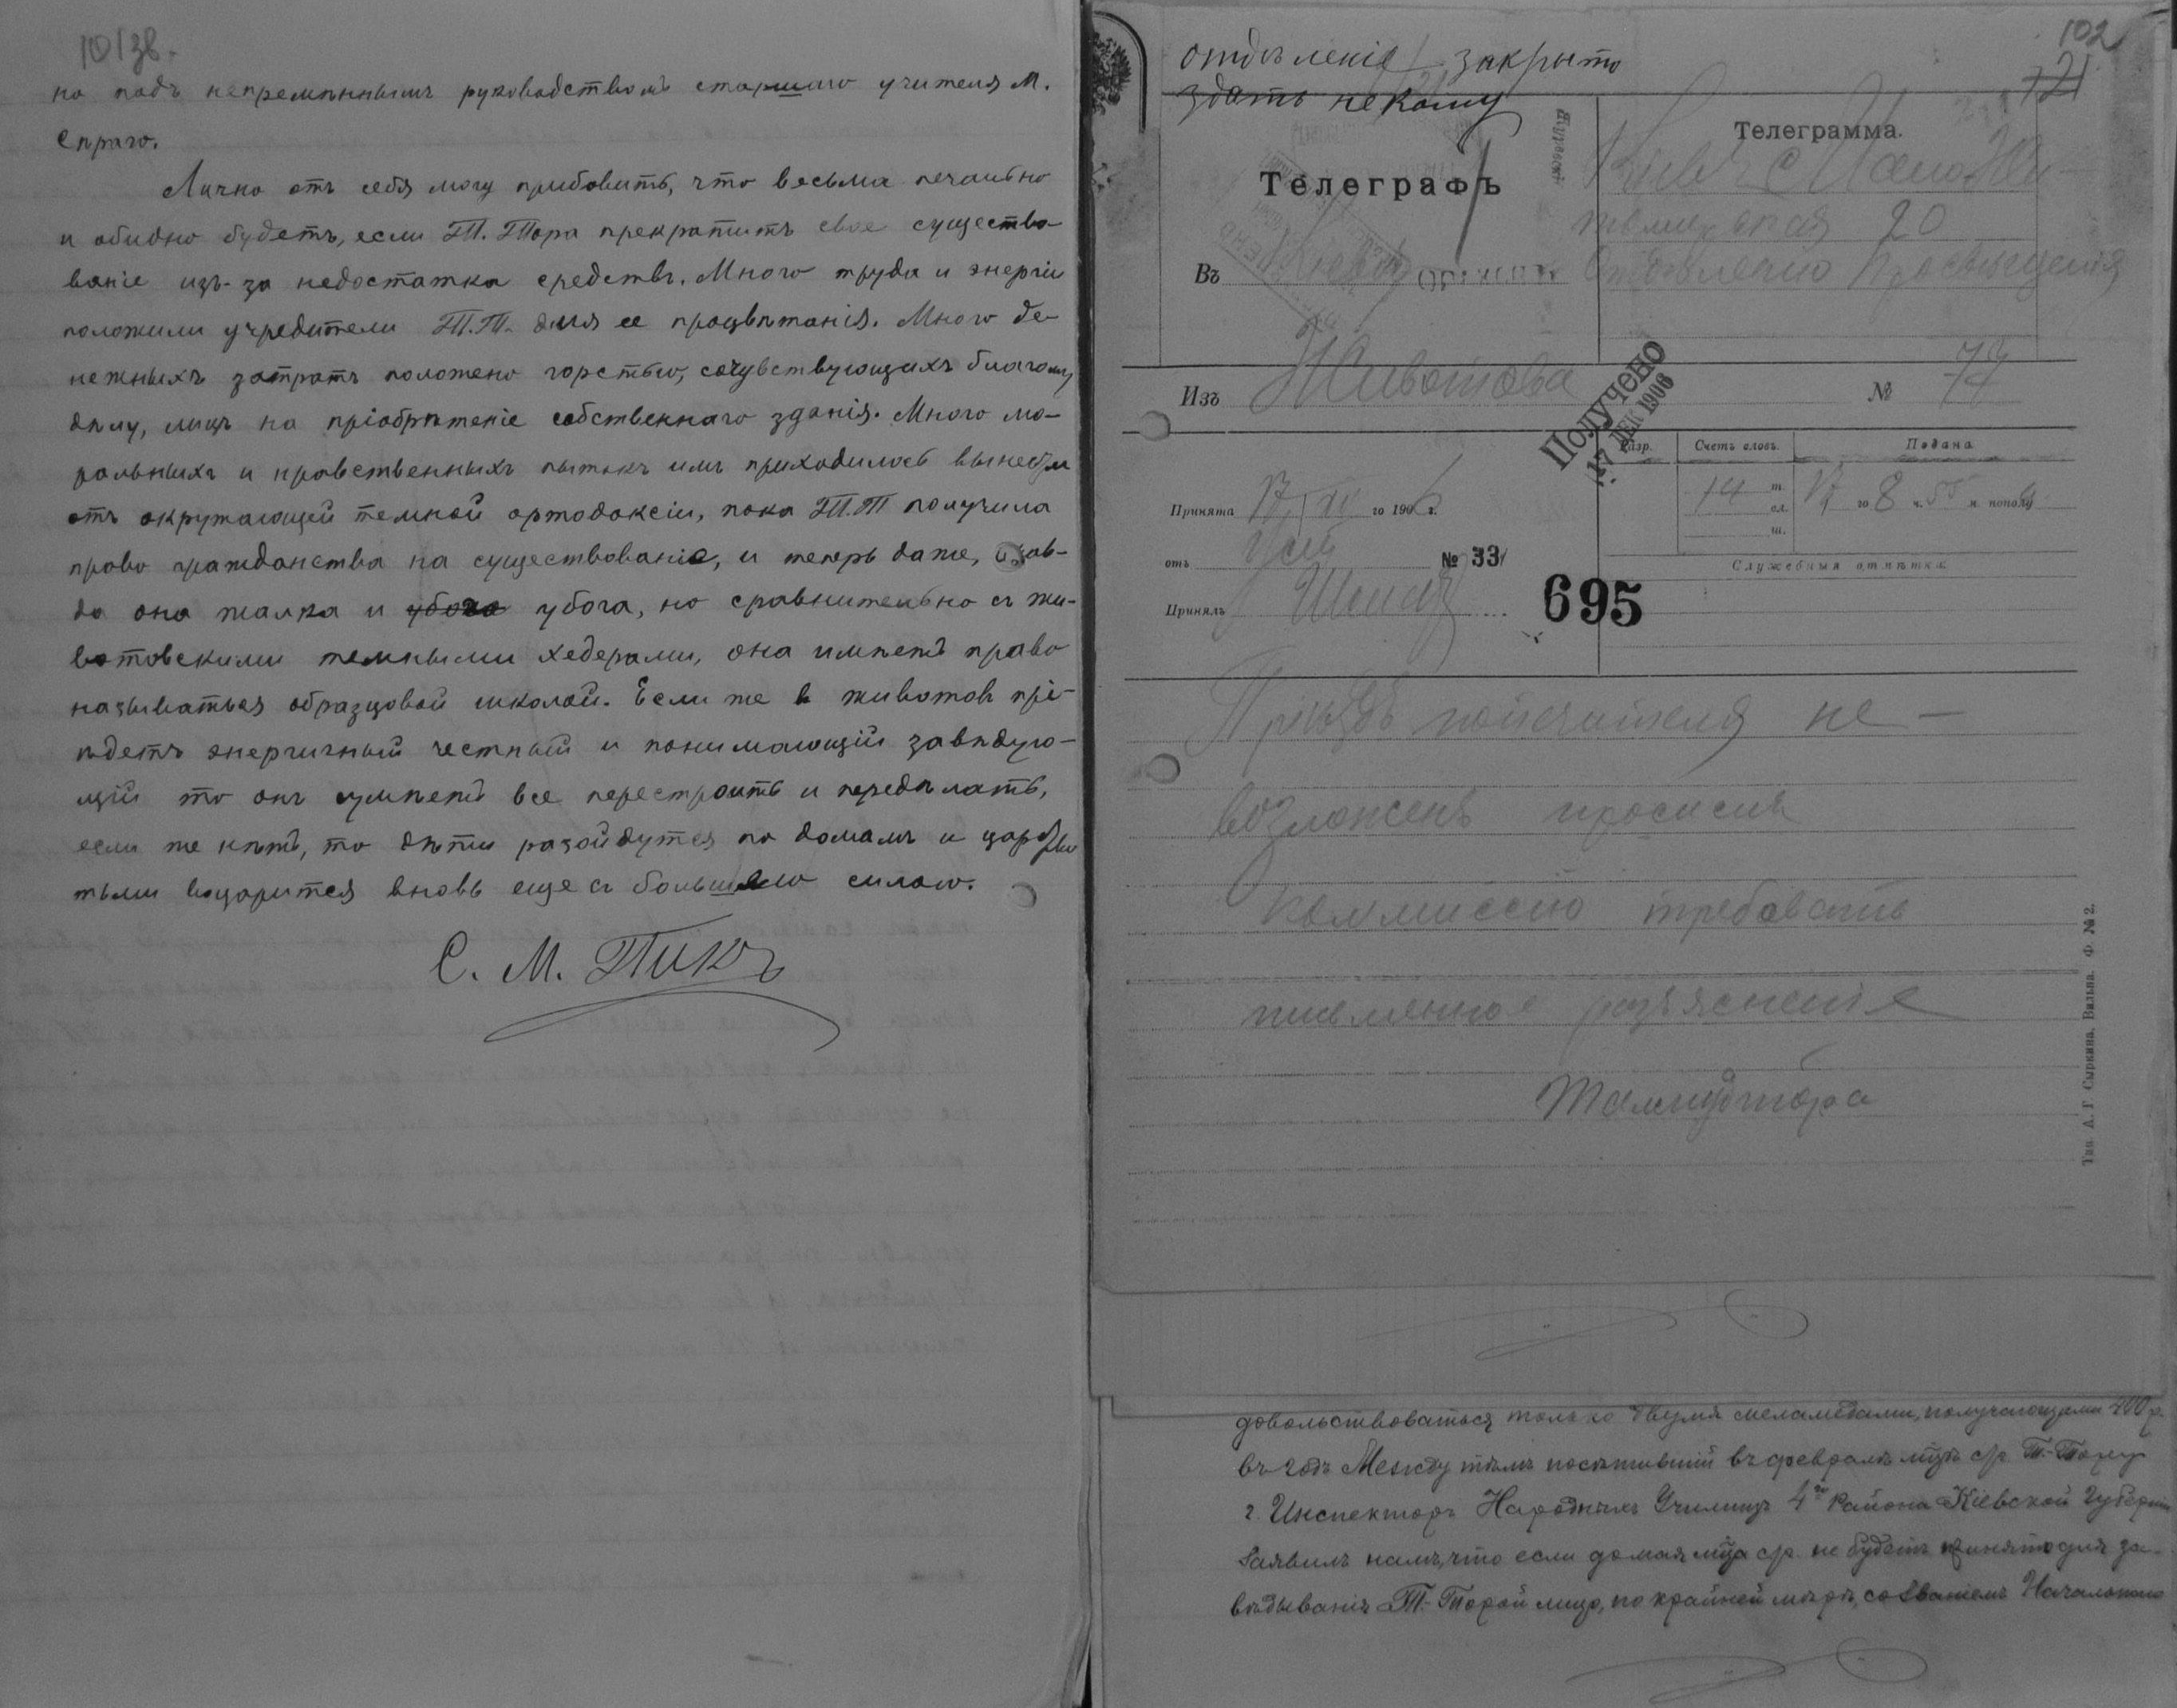 101 зв.
но подъ непремѣннымъ руководствомъ старшаго учителя М.
Спраго.
Лично отъ себя могу прибовить, что весьма печально
и обидно будетъ, если Т. Тора прекратитъ свое существо-
ваніе изъ-за недостатка средствъ. Много труда и энергіи
положили учредители Т.Т. для ее процвѣтанія. Много де-
нежныхъ затратъ положено горстью, сочувствующихъ благому
дѣлу, лицъ на пріобрѣтеніе собственнаго зданія. Много мо-
ральныхъ и нравственныхъ пытокъ имъ приходилось вынести
отъ окружающей темной ортодоксіи, пока Т.Т получила
право гражданства на существованіе, и теперь даже, прав-
да она жалка и убога, но сравнительно съ жи-
вотовскими темными хедерами, она имѣетъ право
называться образцовой школой. Если же в животовъ прі-
ѣдетъ энергичный честный и понимающій завѣдую-
щій то онъ сумѣетъ все перестроить и передѣлать,
если же нѣтъ, то дѣти разойдутся по домамъ и царство
тьмы воцарится вновь еще съ большею силою.
С. М. Пикъ
102
121
отдѣленіе закрыто
здать некому
Телеграмма.
Телеграфъ
Кіевъ
20
Отдѣленію Просвѣщенія
Въ
Изъ Животова № 
Получено
17 ДЕК 1906
Разр. Счетъ словъ. Подана
14 т. 17 го 8 ч. 55 м. пополу
сл.
ш.
Принята 17/XII го 1906 г.
отъ № 33
Служебныя отмѣтки
Принялъ
695
Пріѣздъ попечителя не-
возможенъ просимъ
коммиссію требовать
письменное разъясненіе
Талмудтора
Тип. А. Г. Сыркина. Вильна. Ф. № 2.
довольствоваться только двумя меламедами, получающими 400 р.
въ годъ Между тѣмъ посѣтившій въ февралѣ мцѣ с/г. Т-Тору
г. Инспекторъ Народныхъ Училищъ 4го Района Кіевской Губерніи
Заявилъ намъ, что если до мая мца с/г. не будетъ принято для за-
вѣдыванія Т-Торой лицо, по крайней мѣрѣ, со Званіемъ Начальнаго